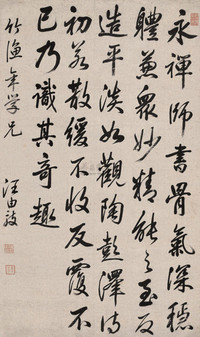 永禪師書骨氣深穩
體兼衆妙精能之至反
造平淡如觀陶彭澤詩
初若散緩不收反覆不
已乃識其奇趣
竹漁年学兄
汪由敦